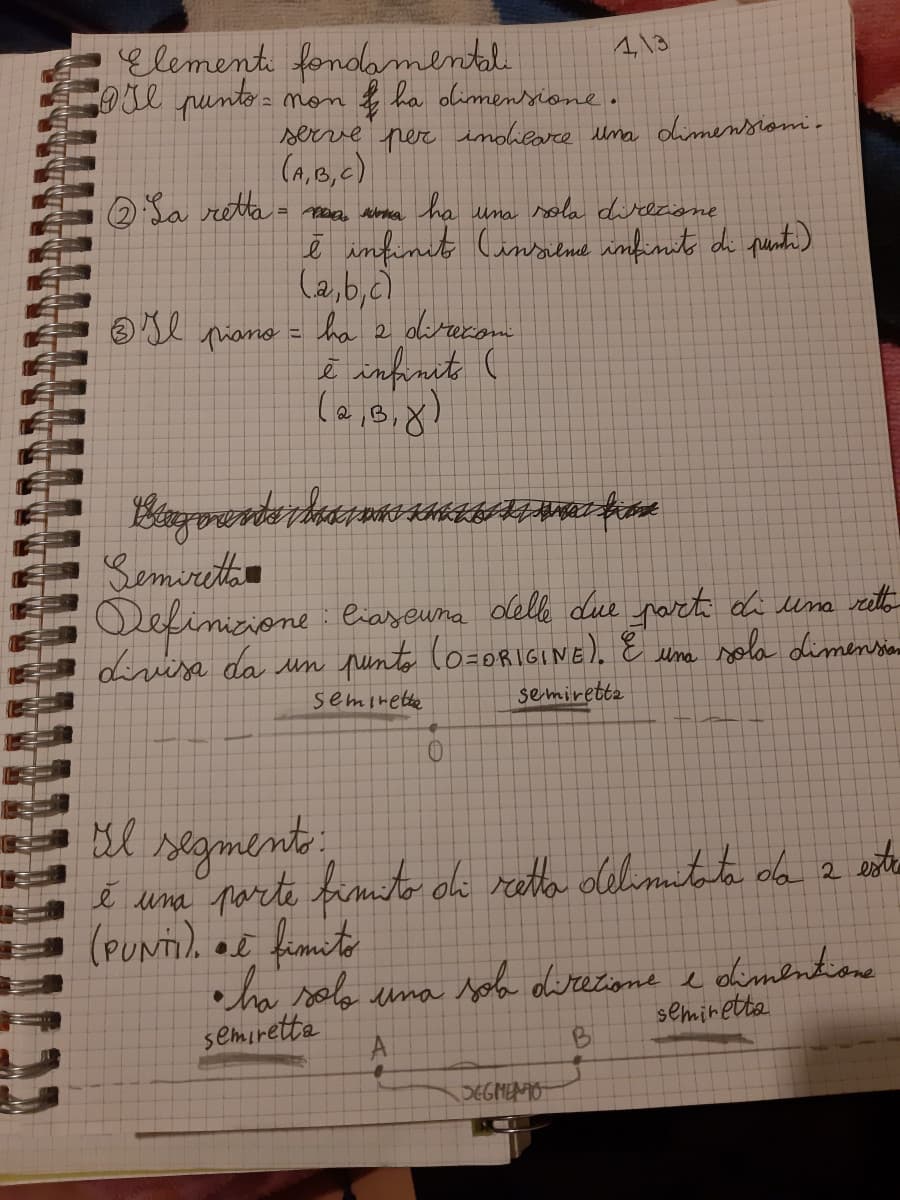 Elementi fondamentali 1\3
① Il punto = non ha dimensione.
serve per indicare una dimensioni.
(A, B, C)
② La retta = ha una sola direzione
è infinit (insieme infinito di punti)
(a, b, c)
③ Il piano = ha 2 direzioni
è infinito (
(a, B, γ)
Semiretta
Definizione: Ciascuna delle due parti di una retta
divisa da un punto (O=ORIGINE). È una sola dimension
semiretta semiretta
O
Il segmento:
è una parte finito di retta delimitata da 2 estr
(PUNTI). • è finito
• ha solo una sola direzione e dimentione
semiretta A B semiretta
SEGMENTO